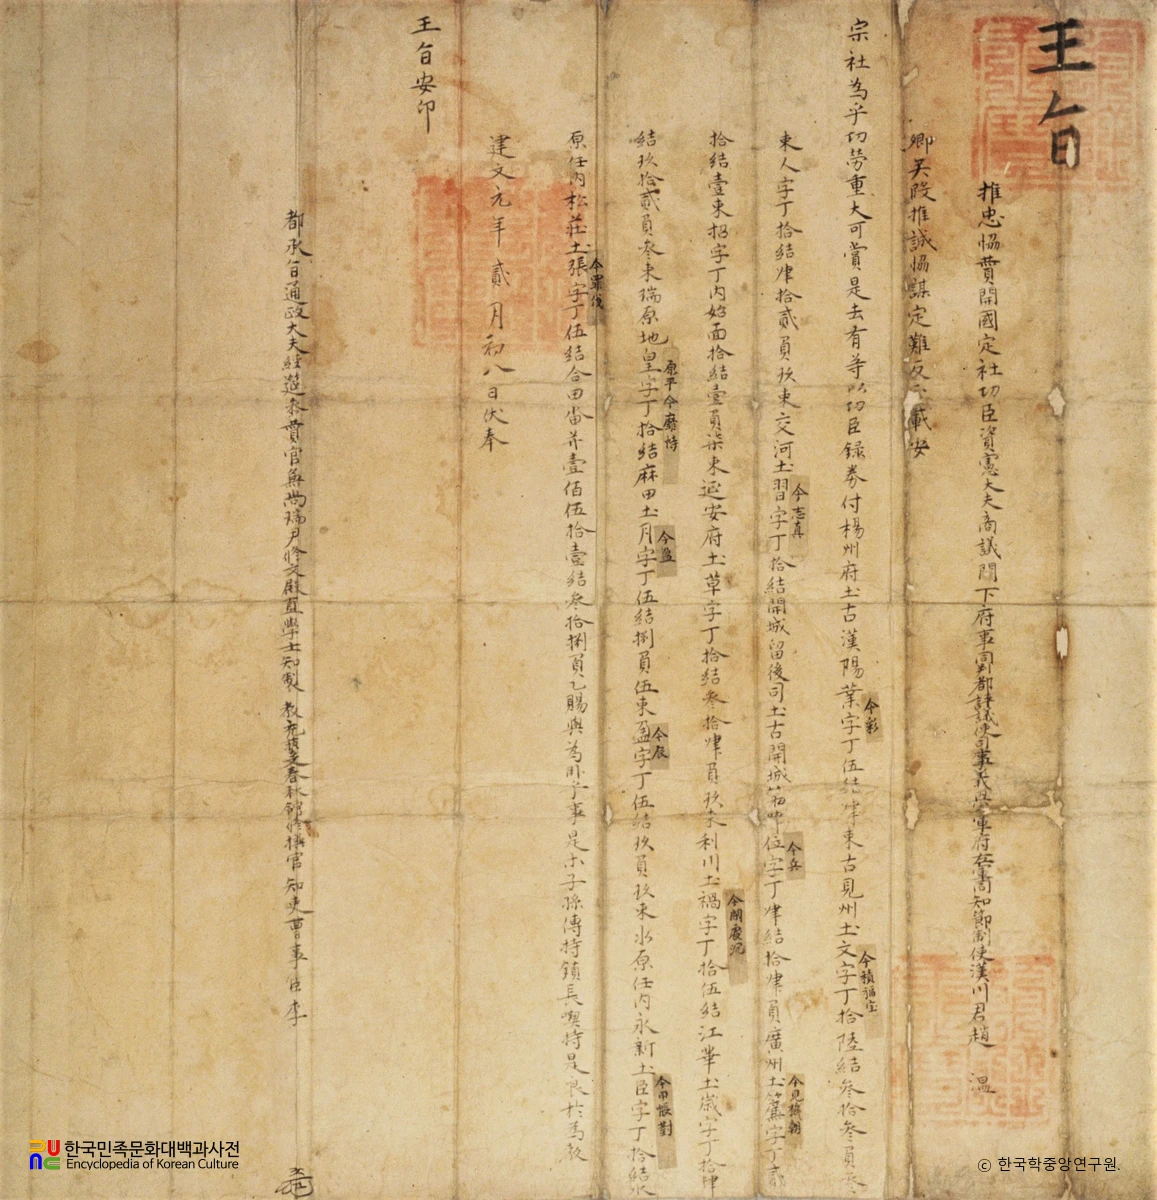 王旨
推忠恊賛開國定社功臣資憲大夫商議門下府事同判都評議使司事義興三軍府右軍同知節制使漢川君趙 溫
卿矣段推誠恊謀定難反正載安
宗社為乎功勞重大可賞是去有等以功臣録券付楊州府土古漢陽葉字丁伍結肆束古見州土文字丁拾陸結叁拾叁員叁
今彩
今積福宝
束人字丁拾結肆拾貳員玖束交河土習字丁拾結開城留後司土古開城位字丁肆結拾肆員廣州土字丁貳
今志真
今兵
拾結壹束招字丁內面拾結壹員柒束延安府土草字丁拾結叁拾肆員玖束利川土禍字丁拾伍結江華土歲字丁拾肆
結玖拾貳員叁束瑞原地皇字丁拾結麻田土月字丁伍結捌員伍束盈字丁伍結玖員玖束水原任內永新土臣字丁拾結
原平今
今盈
今辰
原任內松莊土張字丁伍結合田畓并壹佰伍拾壹結叁拾捌員乙賜與為卧乎事是尓子孫傳持鎮長喫持是良於為教
建文元年貳月初八日伏奉
王旨安印
都承旨通政大夫經筵參賛官兼尚瑞尹修文殿直學士知製 教充藝文春秋館修撰官知吏曹事臣李
한국민족문화대백과사전
Encyclopedia of Korean Culture
ⓒ 한국학중앙연구원.